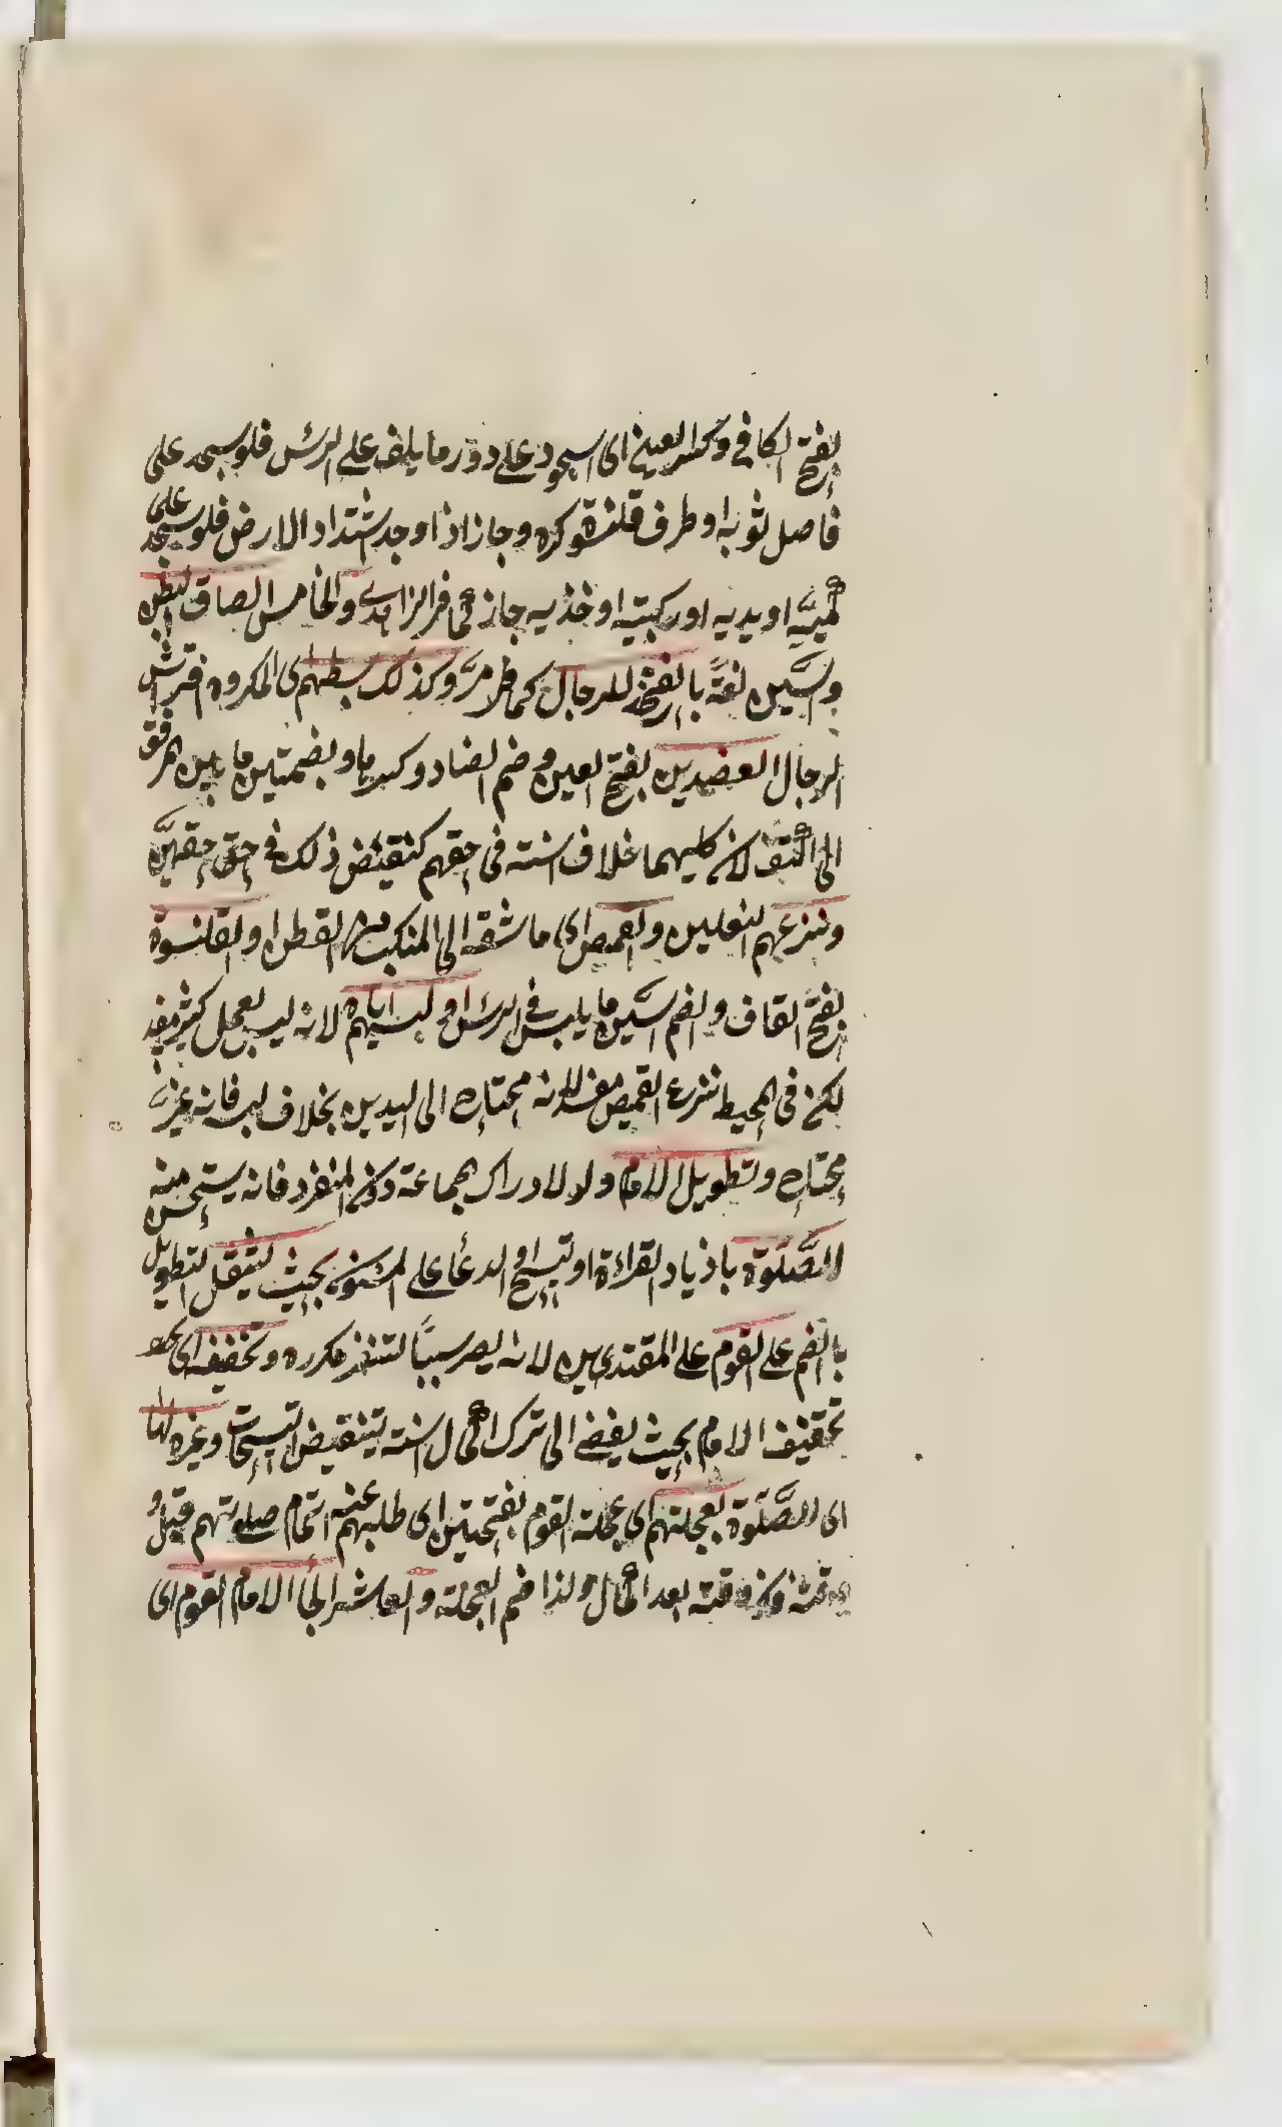 بفتح الكاف وكسر العين اى السجود على دور ما يلف على الرئس فلو سجد على
فاصل ثوبه او طرف قلنسوة كره وجاز اذا وجد اشتداد الارض فلو سجد على
كميه او يديه او ركبتيه او فخذيه جاز كما فى الزاهدى والخامس الصاق البطن
والسين لغة بالفخذ للرجال كما مر وكذلك بسطهم اى المكروه افتراش
الرجال العضدين بفتح العين وضم الضاد وكسرها وبضمتين ما بين المرفق
الى الكتف لان كليهما خلاف السنة فى حقهم كنقيض ذلك فى حق حقهن
ونزعهم النعلين والقميص اى ما شقه الى المنكب من القطن او القلنسوة
بفتح القاف وضم السين ما يلبس فى الرئس او لبسهم اياه لانه ليس بعمل كثير مفسد
لكن فى المحيط نزع القميص مفسد لانه محتاج الى اليدين بخلاف لبسه فانه غير
محتاج وتطويل الامام ولو لادراك الجماعة دون المنفرد فانه يستحسن منه
الصلوة باذياد القراءة او التسبيح او الدعا على المسنون بحيث يثقل التطويل
بالضم على القوم على المقتديين لانه يصير سببا لتنفر مكرره وتخفيفه اى
تحقيف الامام بحيث يفضى الى ترك اكمال السنة بتنقيض التسبيحات وغيره لها
اى الصلوة لعجلتهم اى عجلة القوم بفتحتين اى طلبهم عنه اتمام صلوتهم قبل
وقته بعد اكمال ولذا ضم العجلة والعاشر الجأ الامام القوم اى